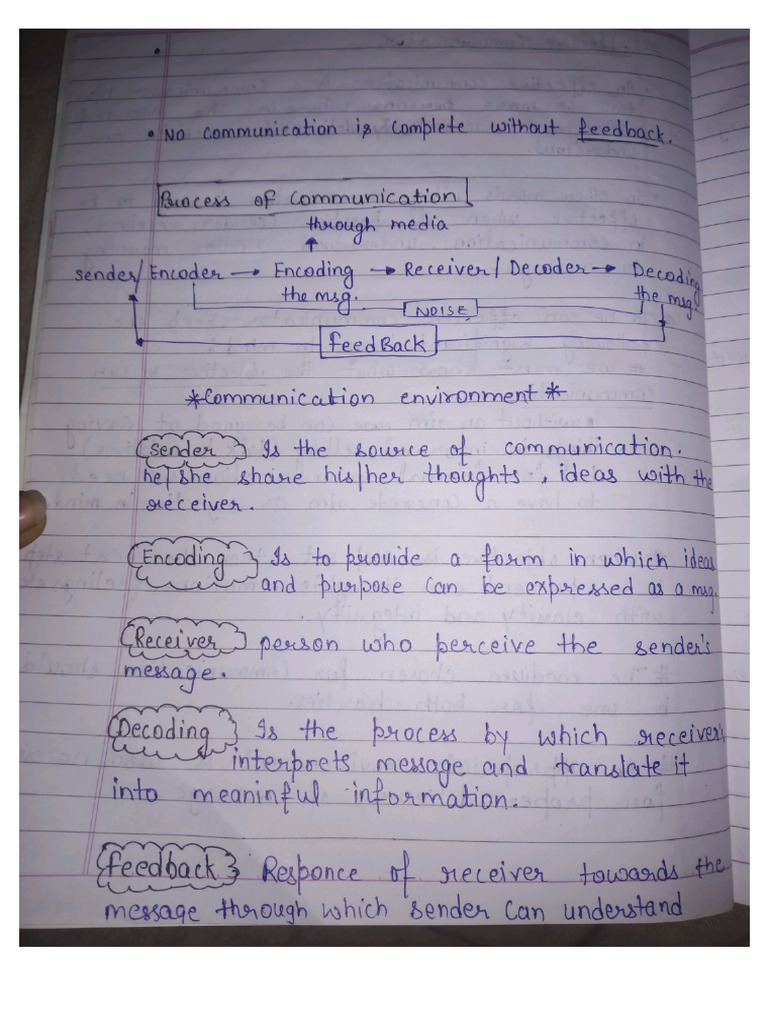 • No communication is complete without feedback.
Process of communication
through media
Sender/Encoder → Encoding the msg. → Receiver/Decoder → Decoding the msg.
NOISE
feedBack
*Communication environment*
Sender Is the source of communication.
he/she share his/her thoughts, ideas with the
receiver.
Encoding Is to provide a form in which ideas
and purpose can be expressed as a msg.
Receiver person who perceive the sender's
message.
Decoding Is the process by which receiver
interprets message and translate it
into meaninful information.
feedback Responce of receiver towards the
message through which sender can understand